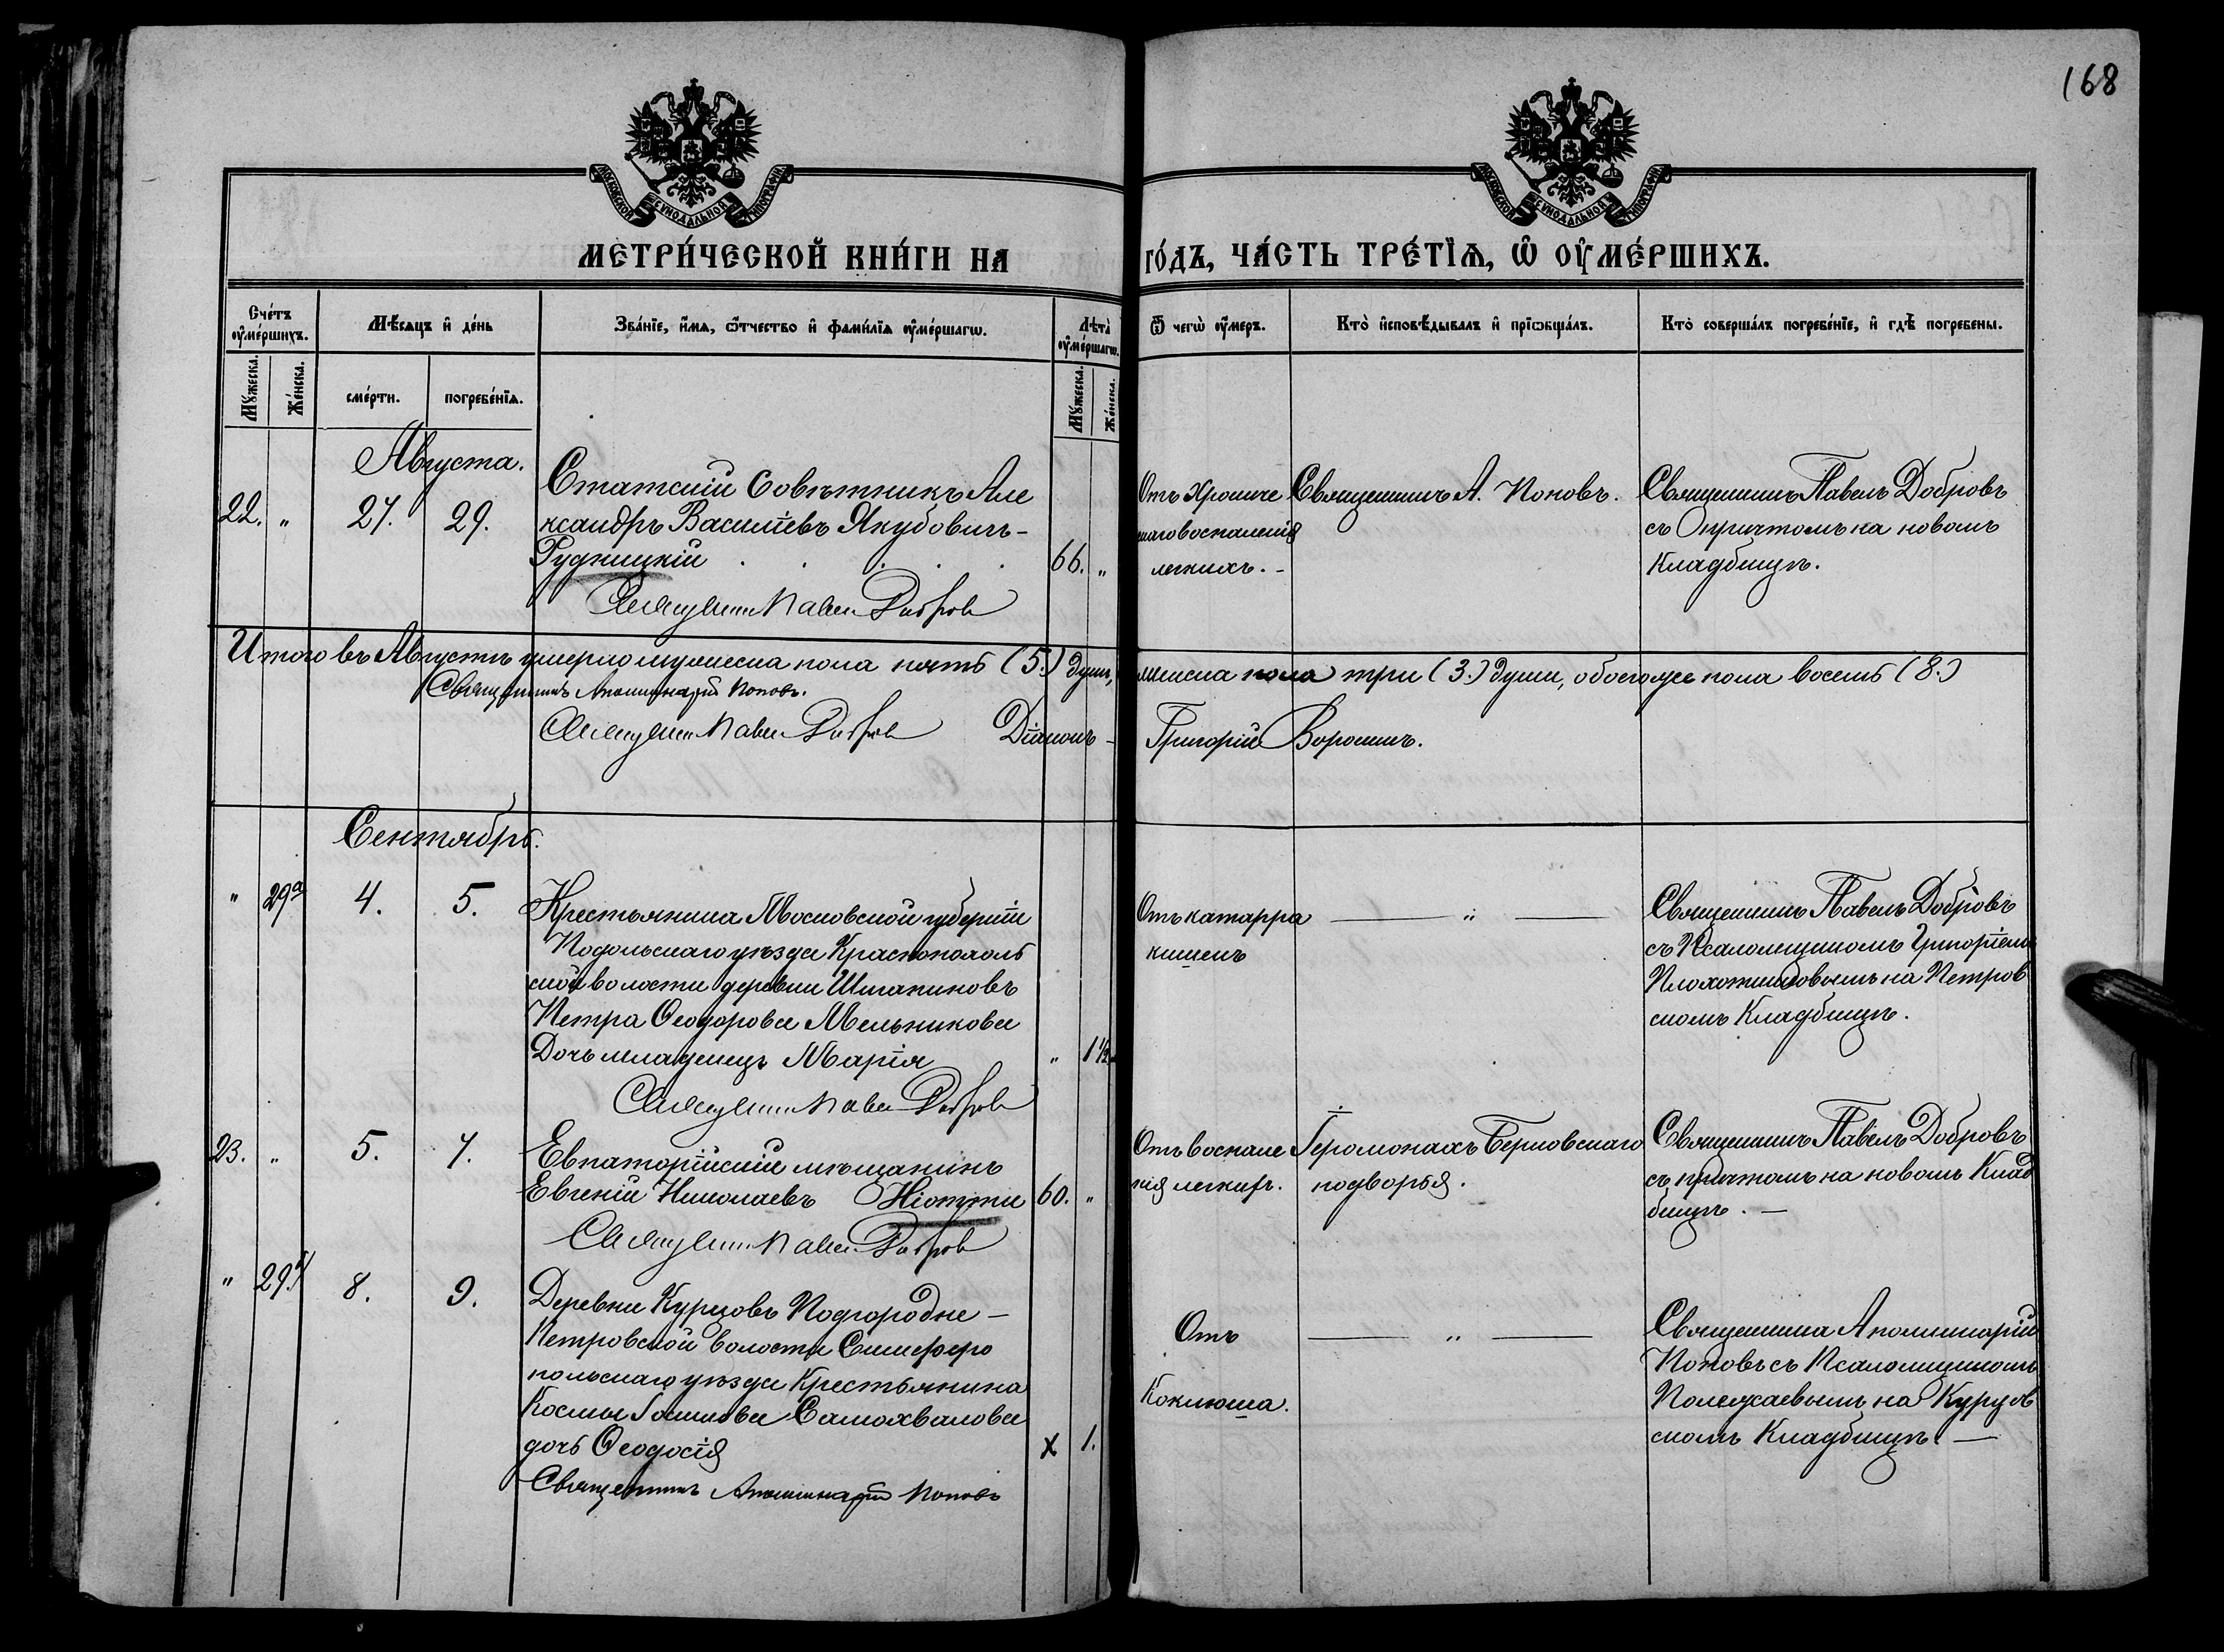 168
МОСКОВСКОЙ СѴНОДАЛЬНОЙ ТИПОГРАФІИ
МОСКОВСКОЙ СѴНОДАЛЬНОЙ ТИПОГРАФІИ
МЕТРИ́ЧЕСКОЙ КНИ́ГИ НА
ГО́ДЪ, ЧА́СТЬ ТРЕ́ТІѦ, Ѡ҆ ОУ҆МЕ́РШИХЪ.
Сче́тъ оу҆ме́ршихъ.
Мѣ́сяцъ и҆ де́нь
Зва́нїе, и҆́мѧ, ѻ҆́тчество и҆ фами́лїѧ оу҆ме́ршагѡ.
Лѣта̀ оу҆ме́ршагѡ.
Ѿ чегѡ̀ оу҆́меръ.
Кто̀ и҆сповѣ́дывалъ и҆ прїѡбща́лъ.
Кто̀ соверша́лъ погребе́нїе, и҆ гдѣ̀ погребены.
Мꙋ́жеска.
Же́нска.
сме́рти.
погребе́нїѧ.
Мꙋ́жеска.
Же́нска.
Августа.
22. " 27. 29.
Статскій Совѣтникъ Але
ксандръ Василіевъ Якубовичъ-
Рудницкій . . . . 66. "
Священникъ Павелъ Добровъ
Отъ хрониче
скаго воспаленія
легкихъ. -
Священникъ А. Поповъ.
Священникъ Павелъ Добровъ
съ причтомъ на новомъ
Кладбищѣ.
Итого въ Августѣ умерло мужеска пола пять (5.) душъ, женска пола три (3.) души, обоего же пола восемь (8.)
Священникъ Аполлинарій Поповъ.
Священникъ Павелъ Добровъ Діаконъ - Григорій Воронинъ.
Сентябрь.
" 29а 4. 5.
Крестьянина Московской губерніи
Подольскаго уѣзда Краснополь
ской волости деревни
Петра Ѳеодорова Мельникова
Дочь младенецъ Марія " 1½
Священникъ Павелъ Добровъ
Отъ катарра
кишекъ
— " —
Священникъ Павелъ Добровъ
съ Псаломщикомъ Григоріемъ
на Петров
скомъ Кладбищѣ.
23. " 5. 7.
Евпаторійскій мѣщанинъ
Евгеній Николаевъ Ніотти 60. "
Священникъ Павелъ Добровъ
Отъ воспале
нія легкихъ.
Іеромонахъ
подворья.
Священникъ Павелъ Добровъ
съ причтомъ на новомъ Клад
бищѣ. —
" 29. 8. 9.
Деревни Курцовъ Подгородне -
Петровской волости Симферо
польскаго уѣзда Крестьянина
Космы Самохвалова
дочь Ѳеодосія х 1.
Священникъ Аполлинарій Поповъ
Отъ
Коклюша.
— " —
Священникъ Аполлинарій
Поповъ съ Псаломщикомъ
Полежаевымъ на Курцов
скомъ Кладбищѣ. —